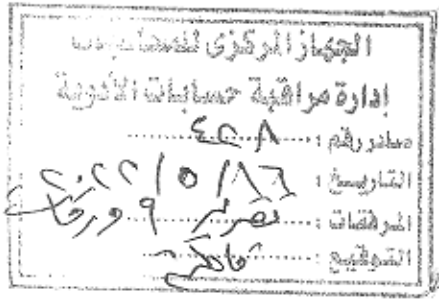 الجهاز المركزى للمحاسبات
إدارة مراقبة حسابات الأدوية
صادر رقم : ٤٢٨
التاريخ : ٢٠٢٢/٥/١٦
المرفقات : ٩ ورقات
التوقيع :